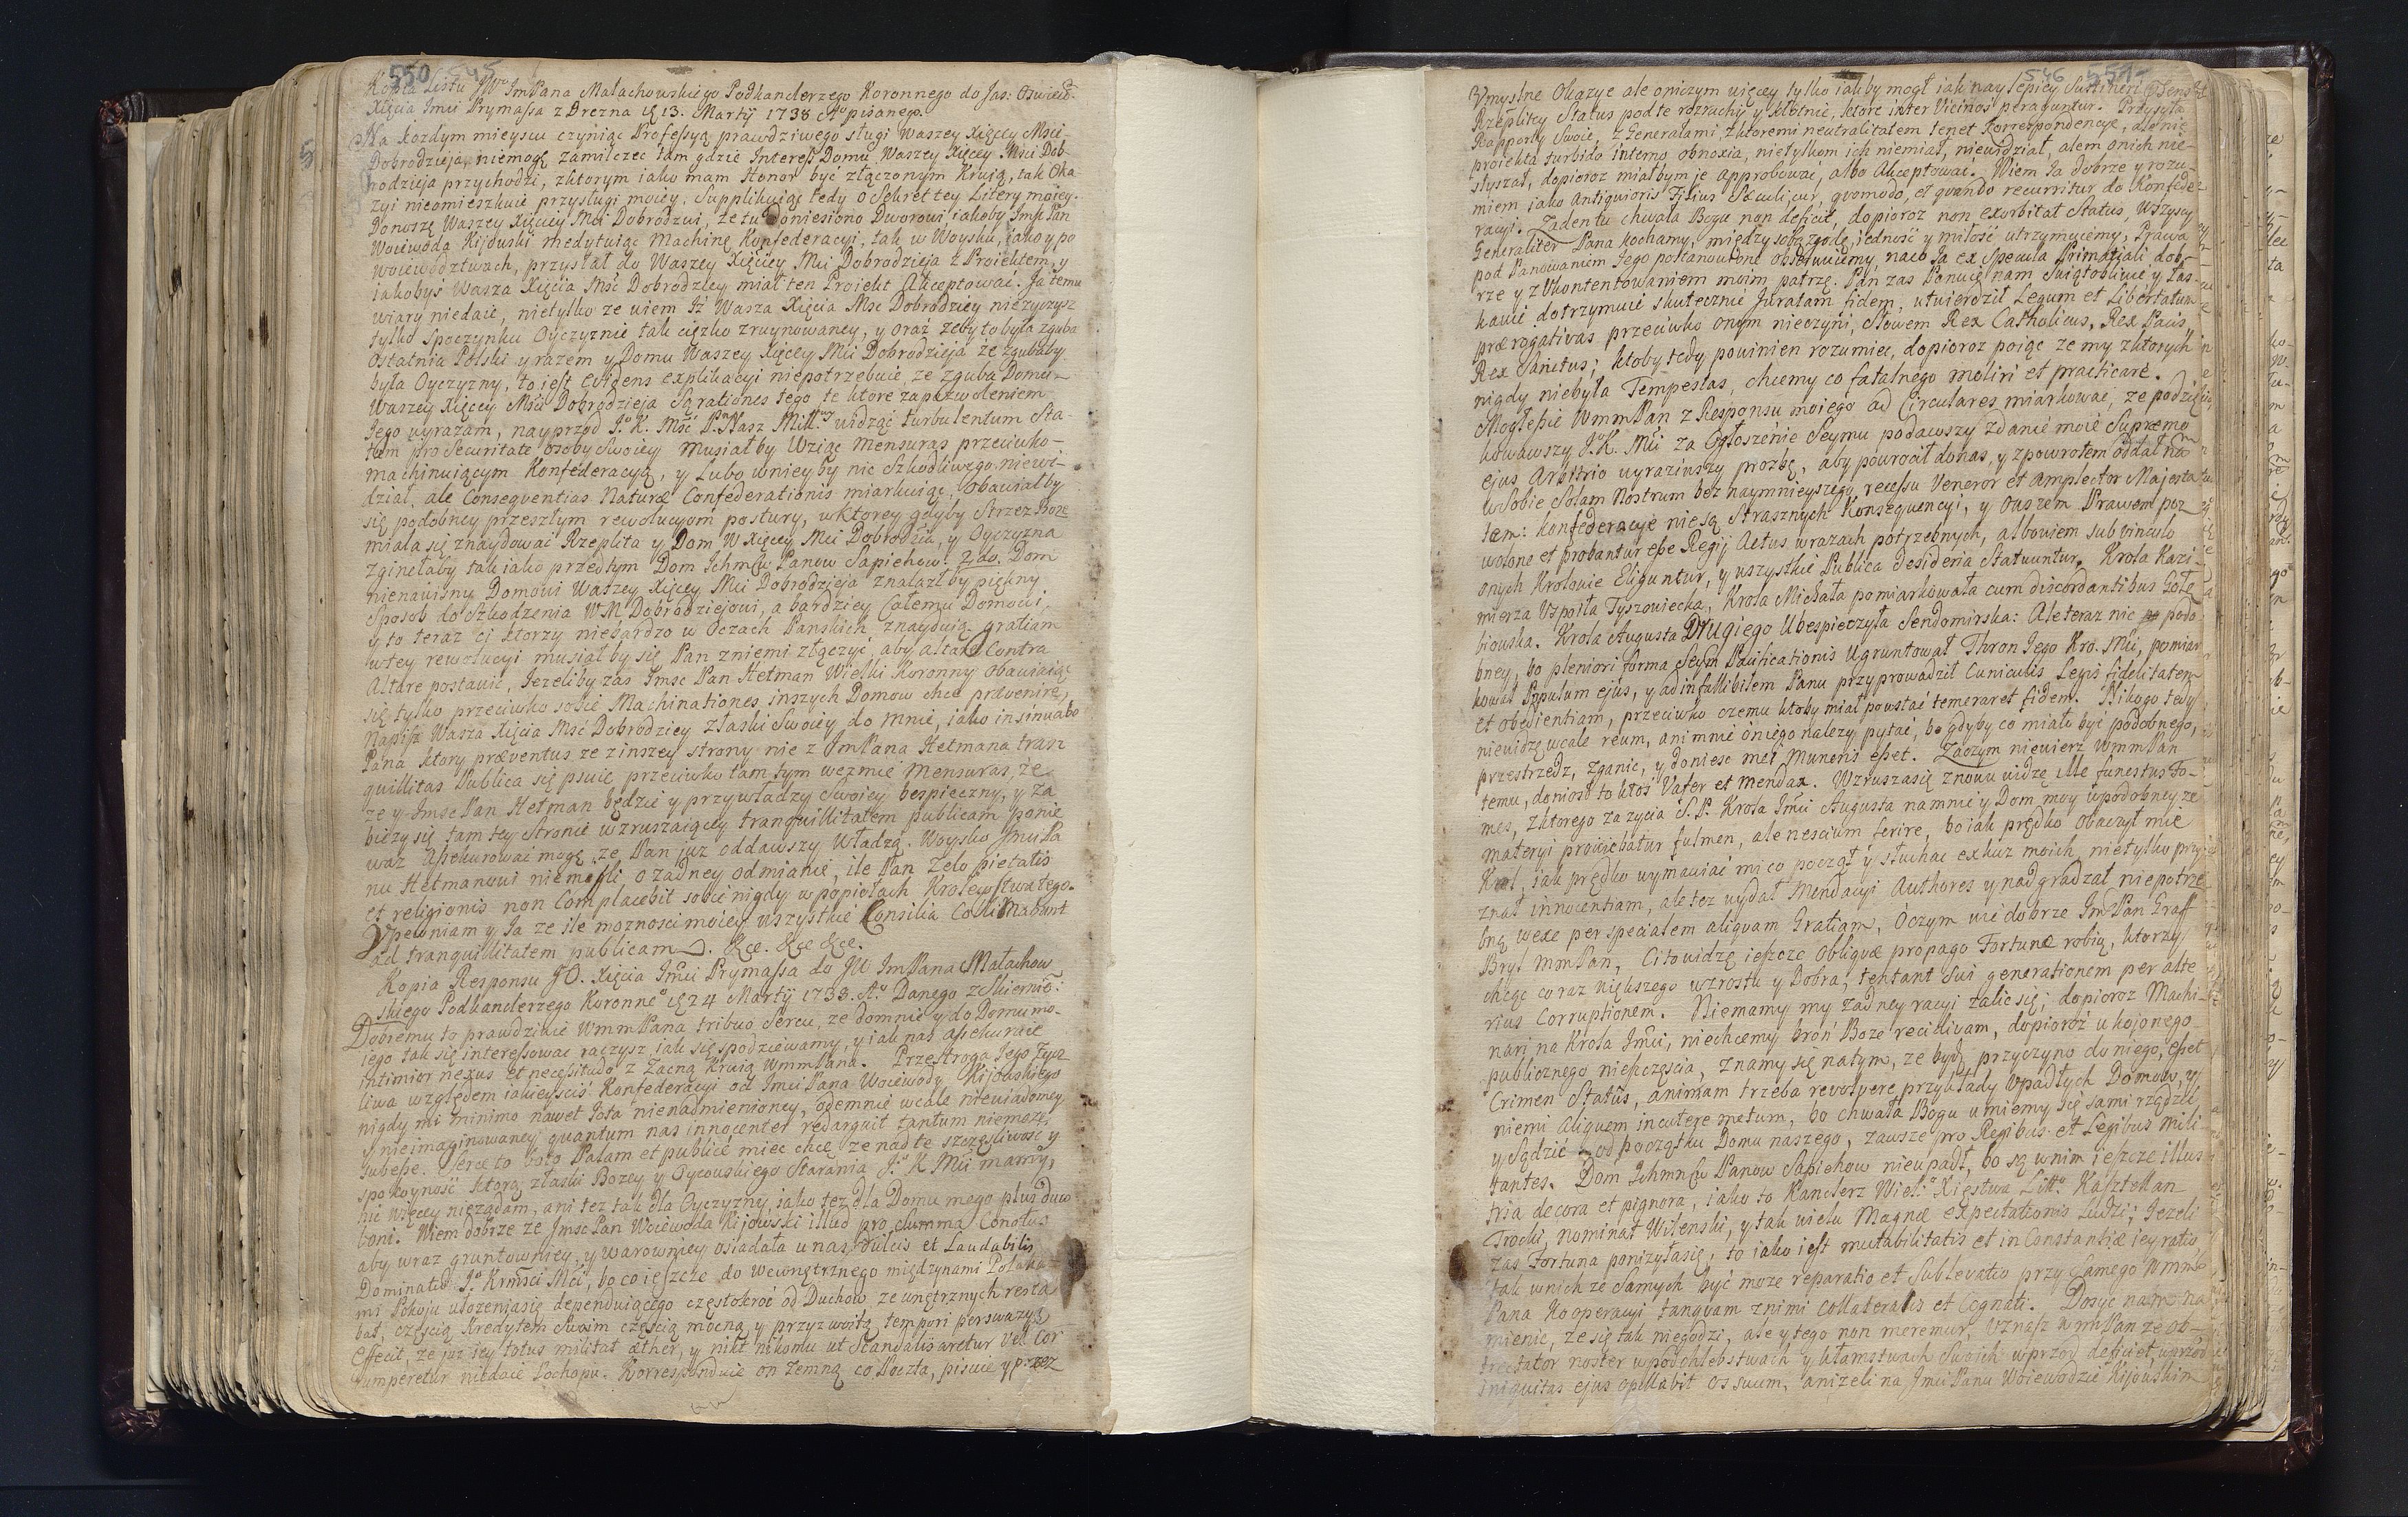 550 545
Kopia Listu JWo ImPana Małachowskiego Podkanclerzego Koronnego do Jas: Oswiec:
Xięcia Imci Prymassa z Drezna d. 13. Martij 1738 Ao pisanego.
Na kozdym mieyscu czyniąc Professyą prawdziwego sługi Waszey Xięcey Mści
Dobrodzieja, niemogę zamilczec tam gdzie Interess Domu Waszey Xięcey Mści Dob-
rodzieja przychodzi, z ktorym iako mam Honor być złączonym krwią, tak Oka-
zyi nieomieszkuię przysługi moiey. Supplikuiąc tedy o Sekret tey Litery moiey.
Donoszę Waszey Xięciey Mci Dobrodziui, że tu doniesiono Dworowi iakoby Imć Pan
Woiewoda Kijowski medytuiąc Machinę Konfederacyi, tak w Woysku, iako y po
woiewodztwach, przysłał do Waszey Xięciey Mci Dobrodzieja z Proiektem, y
iakobyś Wasza Xięcia Mść Dobrodziey miał ten Proiekt Akceptować. Ja temu
wiary niedaię, nietylko ze wiem Iż Wasza Xięcia Mść Dobrodziey nieżyczysz
tylko Spoczynku Oyczyznie tak cięzko zruynowaney, y oraz zeby to była zguba
Ostatnia Polski y razem y Domu Waszey Xięcey Mci Dobrodzieja że zgubaby
była Oyczyzny, to iest Evidens explikacyi niepotrzebuie, ze zguba Domu
Waszey Xięcey Mści Dobrodzieja Są rationes tego te ktore za pozwoleniem
Jego wyrażam, nayprzod J.o K. Mść P.N Nasz Mił.wy widząc turbulentum Sta-
tum pro Securitate osoby Swoiey Musiałby Wziąc Mensuras przeciwko
machinuiącym Konfederacyą, y Lubo w niey by nic Szkodliwego niewi-
dział, ale Conseqventias Naturæ Confederationis miarkuiąc, Obawiałby
się podobney przeszłym rewolucyom postury, w ktorey gdyby Strzez Boze
miała się znaydować Rzeplita y Dom W Xięcey Mci Dobrodzia, y Oyczyzna
zginełaby tak iako przed tym Dom Ichmciw Panow Sapiehow. 2do. Dom
nienawisny Domowi Waszey Xięcey Mci Dobrodzieja znalazłby piękny
Sposob do Szkodzenia WM Dobrodziejowi, a bardziey Całemu Domowi,
y to teraz ci ktorzy niebardzo w Oczach Panskich znayduią gratiam
w tey rewolucyi musiałby się Pan z niemi złączyć, aby altare Contra
Altare postawić, Jezeliby zas Imsc Pan Hetman Wielki Koronny obawiaiąc
się tylko przeciwko sobie Machinationes inszych Domow chce prævenire,
Napisz Wasza Xięcia Mść Dobrodziey z łaski Swoiey do mnie, iako insinuabo
Pana ktory præventus ze z inszey strony nie z ImPana Hetmana tran
quillitas Publica się psuie przeciwko tam tym wezmie Mensuras, że
ze y Imsc Pan Hetman będzie y przy władzy Swoiey bespieczny, y za
biezy się tam tey stronie wzruszaiącey tranquillitatem publicam ponie
waz Assekurować mogę, ze Pan juz oddawszy Władzą Woysko ImciPa
nu Hetmanowi niemysli o żadney odmianie, ile Pan Zelo pietatis
et religionis non Complacebit sobie nigdy w popiołach Krolewstwa tego.
Upewniam y Ja ze ile moznosci moiey wszystkie Consilia Collimabunt
ad tranquillitatem publicam. &ce. &ce &ce.
Kopia Responsu JO. Xięcia Imci Prymassa do JW ImPana Małachow
skiego Podkanclerzego Koronnego d 24 Martij 1738. Ao Danego z Skierniew:
Dobremu to prawdziwie WmmPana tribuo Sercu, ze do mnie y do Domu mo-
iego tak się interessowac raczysz, iak się spodziewamy, y iak nas assekuruie
intimior nexus et necessitudo z Zacną Krwią WmmPana. Przestroga Jego Zycz
liwa względem iakieyscis Konfederacyi od Imci Pana Woiewody Kijowskiego
nigdy mi minimo nawet Jota nienadmienioney, odemnie wcale niewiadomey
y nieimaginowaney quantum nas innocenter redarguit tantum niemoze
subesse. Serce to było Palam et publicé miec chcę, ze nad te szczęsliwosc y
spokoynosc ktorą z łaski Bozey y Oycowskiego Starania J.o K Mci mamy,
nic więcey nieżądam, ani tez tak dla Oyczyzny, iako tez dla Domu mego plus duco
boni. Wiem dobrze ze Imsc Pan Woiewoda Kijowski illud pro Summa Conatus
aby wraz gruntowniey y warowniey osiadała u nas, dulcis et Laudabilis
Dominatio J.o Krmści Mci, bo co ieszcze do wewnętrznego między nami Polaka-
mi Pokoju ułozenia się dependuiącego częstokroć od Duchow zewnętrznych resta
bat, częscią Kredytem Swoim częscią mocną y przyzwoitą tempori perswazyą
Effecit, ze juz iey totus militat æther, y nikt nikomu ut Scandalisaretur vel Cor
rumperetur niedaie Pochopu. Korresponduie on zemną co Poczta, pisuie y przez
546 551
Umyslne Okazye ale oniczym więcey tylko iakby mogł iak naylepiey
Rzeplitey Status pod te rozruchy y kłotnie, ktore inter Vicinos peraguntur. Przysyła
Rapporty Swoie, z Generałami z ktoremi neutralitatem tenet Korrespondencye, ale nie
proiekta turbido interno obnoxia, nietylkom ich niemiał, niewidział, alem onich nie
słyszał, dopioroz miałbym je approbowac, albo Akceptować. Wiem Ja dobrze y rozu-
miem iako Antiquioris Filius Sæculi, cur, qvomodo, et quando recurritur do Konfede-
racyi. Zaden tu chwała Bogu non deficit, dopioroz non exorbitat Status, Wszyscy
Generaliter Pana kochamy, między sobą zgodę, iednosć y miłosć utrzymuiemy, Prawa
pod Panowaniem Jego postanowione obserwuiemy, naco Ja ex Specula Primatiali dob-
rze y z Ukontentowaniem moim patrzę. Pan zas Panuie nam Swiątobliwie y Łas-
kawie dotrzymuie skutecznie Juratam fidem, utwierdził Legum et Libertatum
prærogativas przeciwko onym nieczyni, Słowem Rex Catholicus, Rex Pacis
Rex Sanctus; ktoby tedy powinien rozumiec, dopioroz poiąc ze my z ktorych
nigdy niebyła Tempestas, chcemy co fatalnego moliri et practicare.
Mogłesie WmmPan z Responsu moiego ad Circulares miarkowac, ze podzię
kowawszy J.K. Mci za Ogłoszenie Seymu podawszy zdanie moie Supremo
ejus Arbitrio wyraziwszy prozbę, aby powrocił do nas, y z powrotem oddał nam
w Sobie Solam Nostrum bez naymnieyszego recessu Veneror et amplector Majesta
tem: Konfederacye nie są Strasznych Konsequencyi, y owszem Prawem poz
wolone et probantur esse Regij Actus w razach potrzebnych, albowiem sub vinculo
onych Krolowie Eliguntur, y wszystkie Publica desideria Statuuntur. Krola Kazi-
mierza Vsparła Tyszowiecka, Krola Michała pomiarkowała cum discordantibus Gołę
biowska. Krola Augusta Drugiego Ubespieczyła Sendomirska: Ale teraz nic podo
bney, bo pleniori forma Seym Pacificationis Ugruntował Thron Jego Kro. Mci, pomiar
kował Populum ejus, y ad infallibilem Panu przyprowadził Cuniculis Legis fidelitatem
et obedientiam, przeciwko czemu ktoby miał powstać temeraret fidem. Nikogo tedy
niewidzę wcale reum, ani mnie oniego nalezy pytać, bo gdyby co miało być podobnego,
przestrzedz, zganic, y doniesc mei Muneris esset. Zaczym niewierz WmmPan
temu, doniosł to ktoś Vafer et mendax. Wzruszasię znowu widzę ille funestus Fo-
mes, z ktorego za zycia S.P. Krola Imci Augusta na mnie y Dom moy w podobney ze
materyi proiiciebatur fulmen, ale nescium ferire, bo iak prędko obaczył mie
Krol, iak prędko wymawiać mi co począł y słuchac exkuz moich, nietylko przy
znał innocentiam, ale tez wydał Mendacyi Authores y nadgradzał niepotrze
bną wexe per specialem aliquam Gratiam, Oczym wie dobrze ImPan Graff
Bryl MmPan, Cito widzę ieszcze Obliquæ propago Fortunæ robią, ktorzy
chcąc co raz większego wzrostu y Dobra, tentant Sui generationem per alte
rius Corruptionem. Niemamy my żadney racyi zalic się; dopioroz Machi-
nari na Krola Imci, niechcemy broń Boze recidivam, dopioroż ukojonego
publicznego nieszczęscia, znamy się natym, ze być przyczyną do niego, esset
Crimen Statûs, animam trzeba revolvere przykłady Upadłych Domow, y
niemi Aliquem incutere metum, bo chwała Bogu umiemy się sami rządzić
y Sądzić od początku Domu naszego, zawsze pro Regibus et Legibus mili-
tantes. Dom Ichmnciw Panow Sapiehow nieupadł, bo są w nim ieszcze illus
tria decora et pignora, iako to Kanclerz Wiel: Xięstwa Litt.o Kasztellan
Trocki, nominat Wilenski, y tak wielu Magnæ expectationis Ludzi; Jezeli
zas Fortuna ponizyłasię, to iako iest mutabilitatis et inConstantiæ iey ratio
tak w nich ze samych być moze reparatio et Sublevatio przy Samego Wmm
Pana Kooperacyi tanqvam z nimi collateralis et Cognati. Dosyc nam na
mienic, ze się tak niegodzi, ale y tego non meremur, Uznasz WmPan ze ob-
trectator noster w pochlebstwach y kłamstwach Swoich wprzod deficiet, wprzod
iniquitas ejus opilabit os suum, anizeli na Jmci Panu Woiewodzie Kijowskim